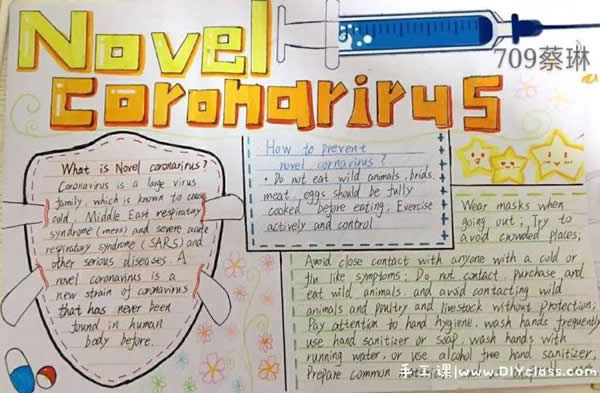 Novel
709蔡琳
coronarirus
What is Novel coronarinus?
Coronavirus is a large virus
family, which is known to cause
cold, Middle East respiratory
syndrome (mers) and severe acute
respiratory syndrome (SARS) and
other serious diseases. A
novel coronavirus is a
new strain of coronavirus
that has never been
found in human
body before.
How to prevent
novel cornavirus?
· Do not eat wild animals, brids,
meat, eggs should be fully
cooked before eating, Exercise
actively and control
Wear masks when
going out; Try to
avoid crowded places;
Avoid close contact with anyone with a cold or
flu like symptoms; Do not contact, purchase and
eat wild animals, and avoid contacting wild
animals and poultry and livestock without protection,
Pay attention to hand hygiene, wash hands frequently
use hand sanitizer or soap, wash hands with
running water, or use alcohol free hand sanitizer,
Prepare common
手工课|www.DIYclass.com